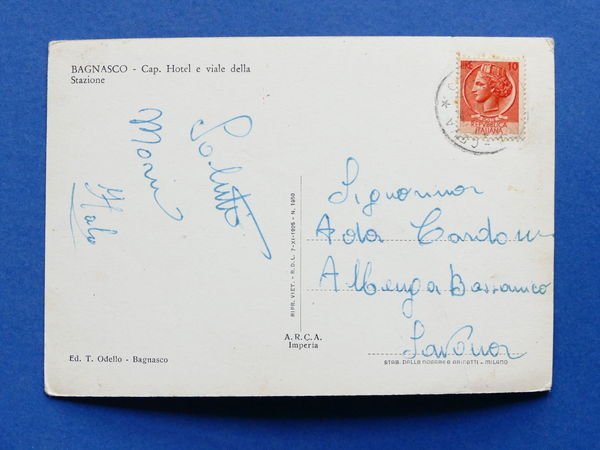 BAGNASCO - Cap. Hotel e viale della
Stazione
Saluti
Italo
10
REPUBBLICA
ITALIANA
Signorina
Ada Cardone
Albenga Bassanico
Savona
RIPR. VIET. - R.D.L. 7-XI-1925 - N. 1950
A.R.C.A.
Imperia
Ed. T. Odello - Bagnasco
STAB. DALLE NOGARE E ARMETTI - MILANO